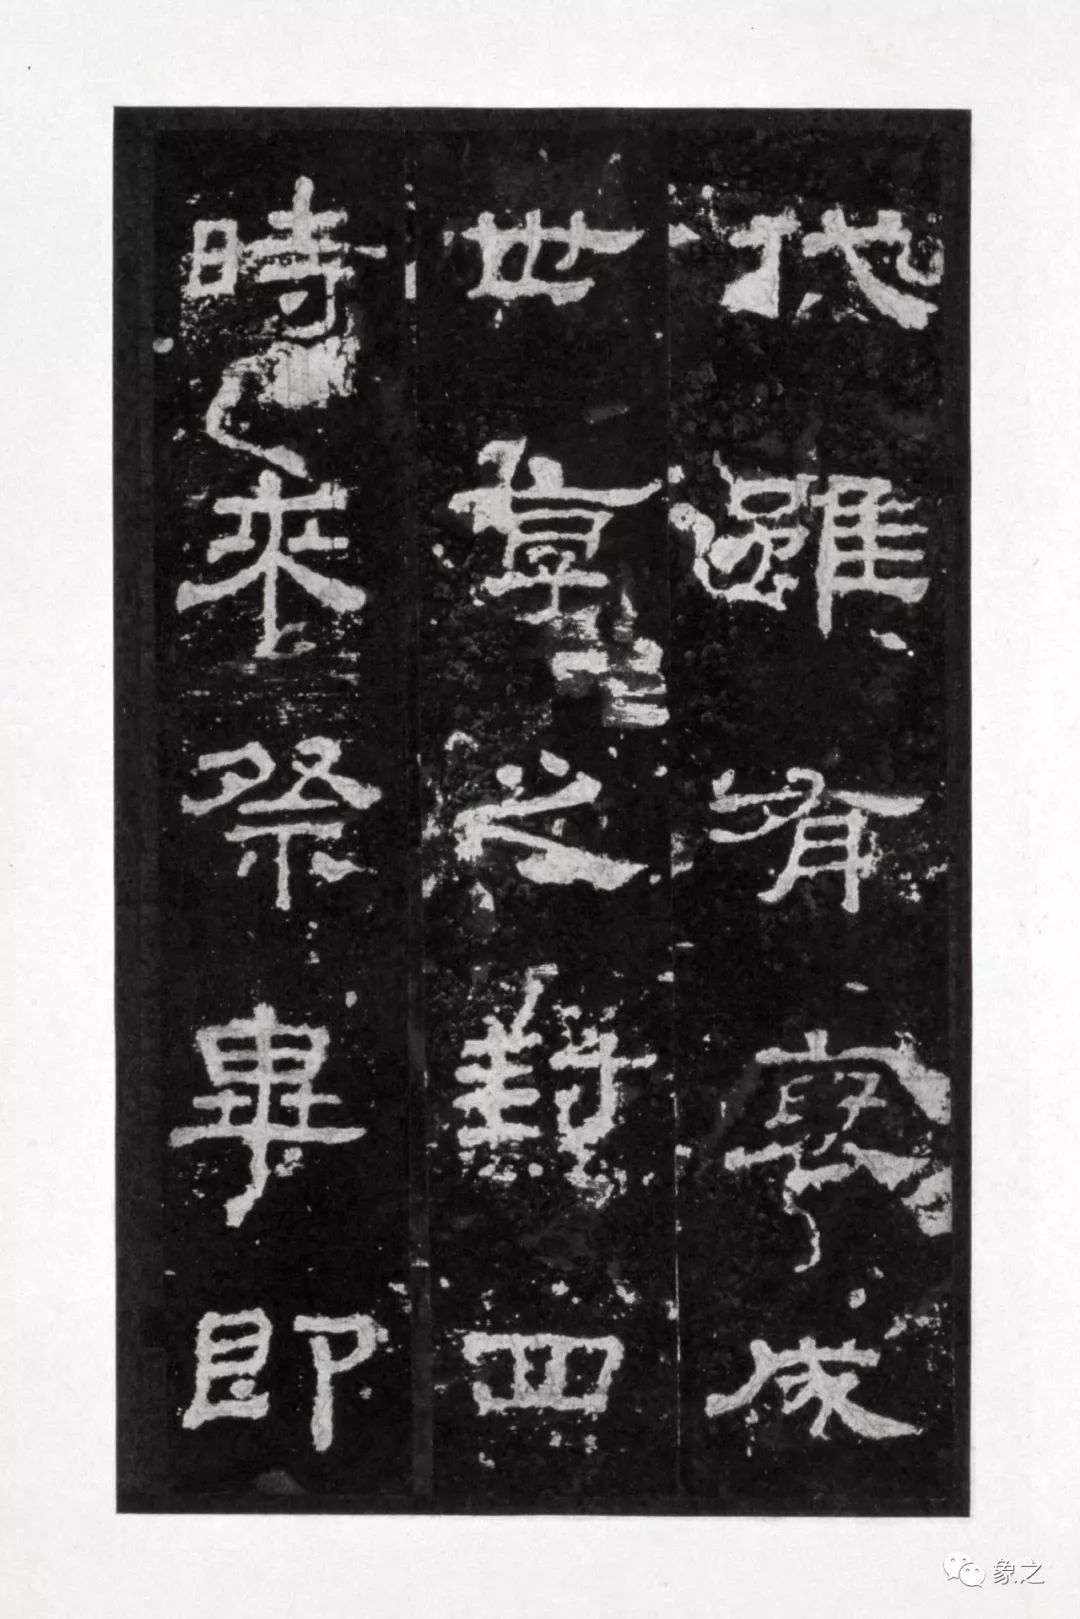 代雖有褒成
世享之封四
時來祭畢即
象之